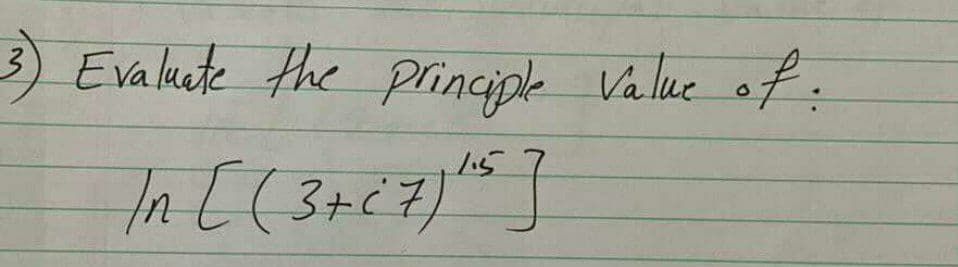 3) Evaluate the principle Value of :
ln [ ( 3+i7)^1.5 ]